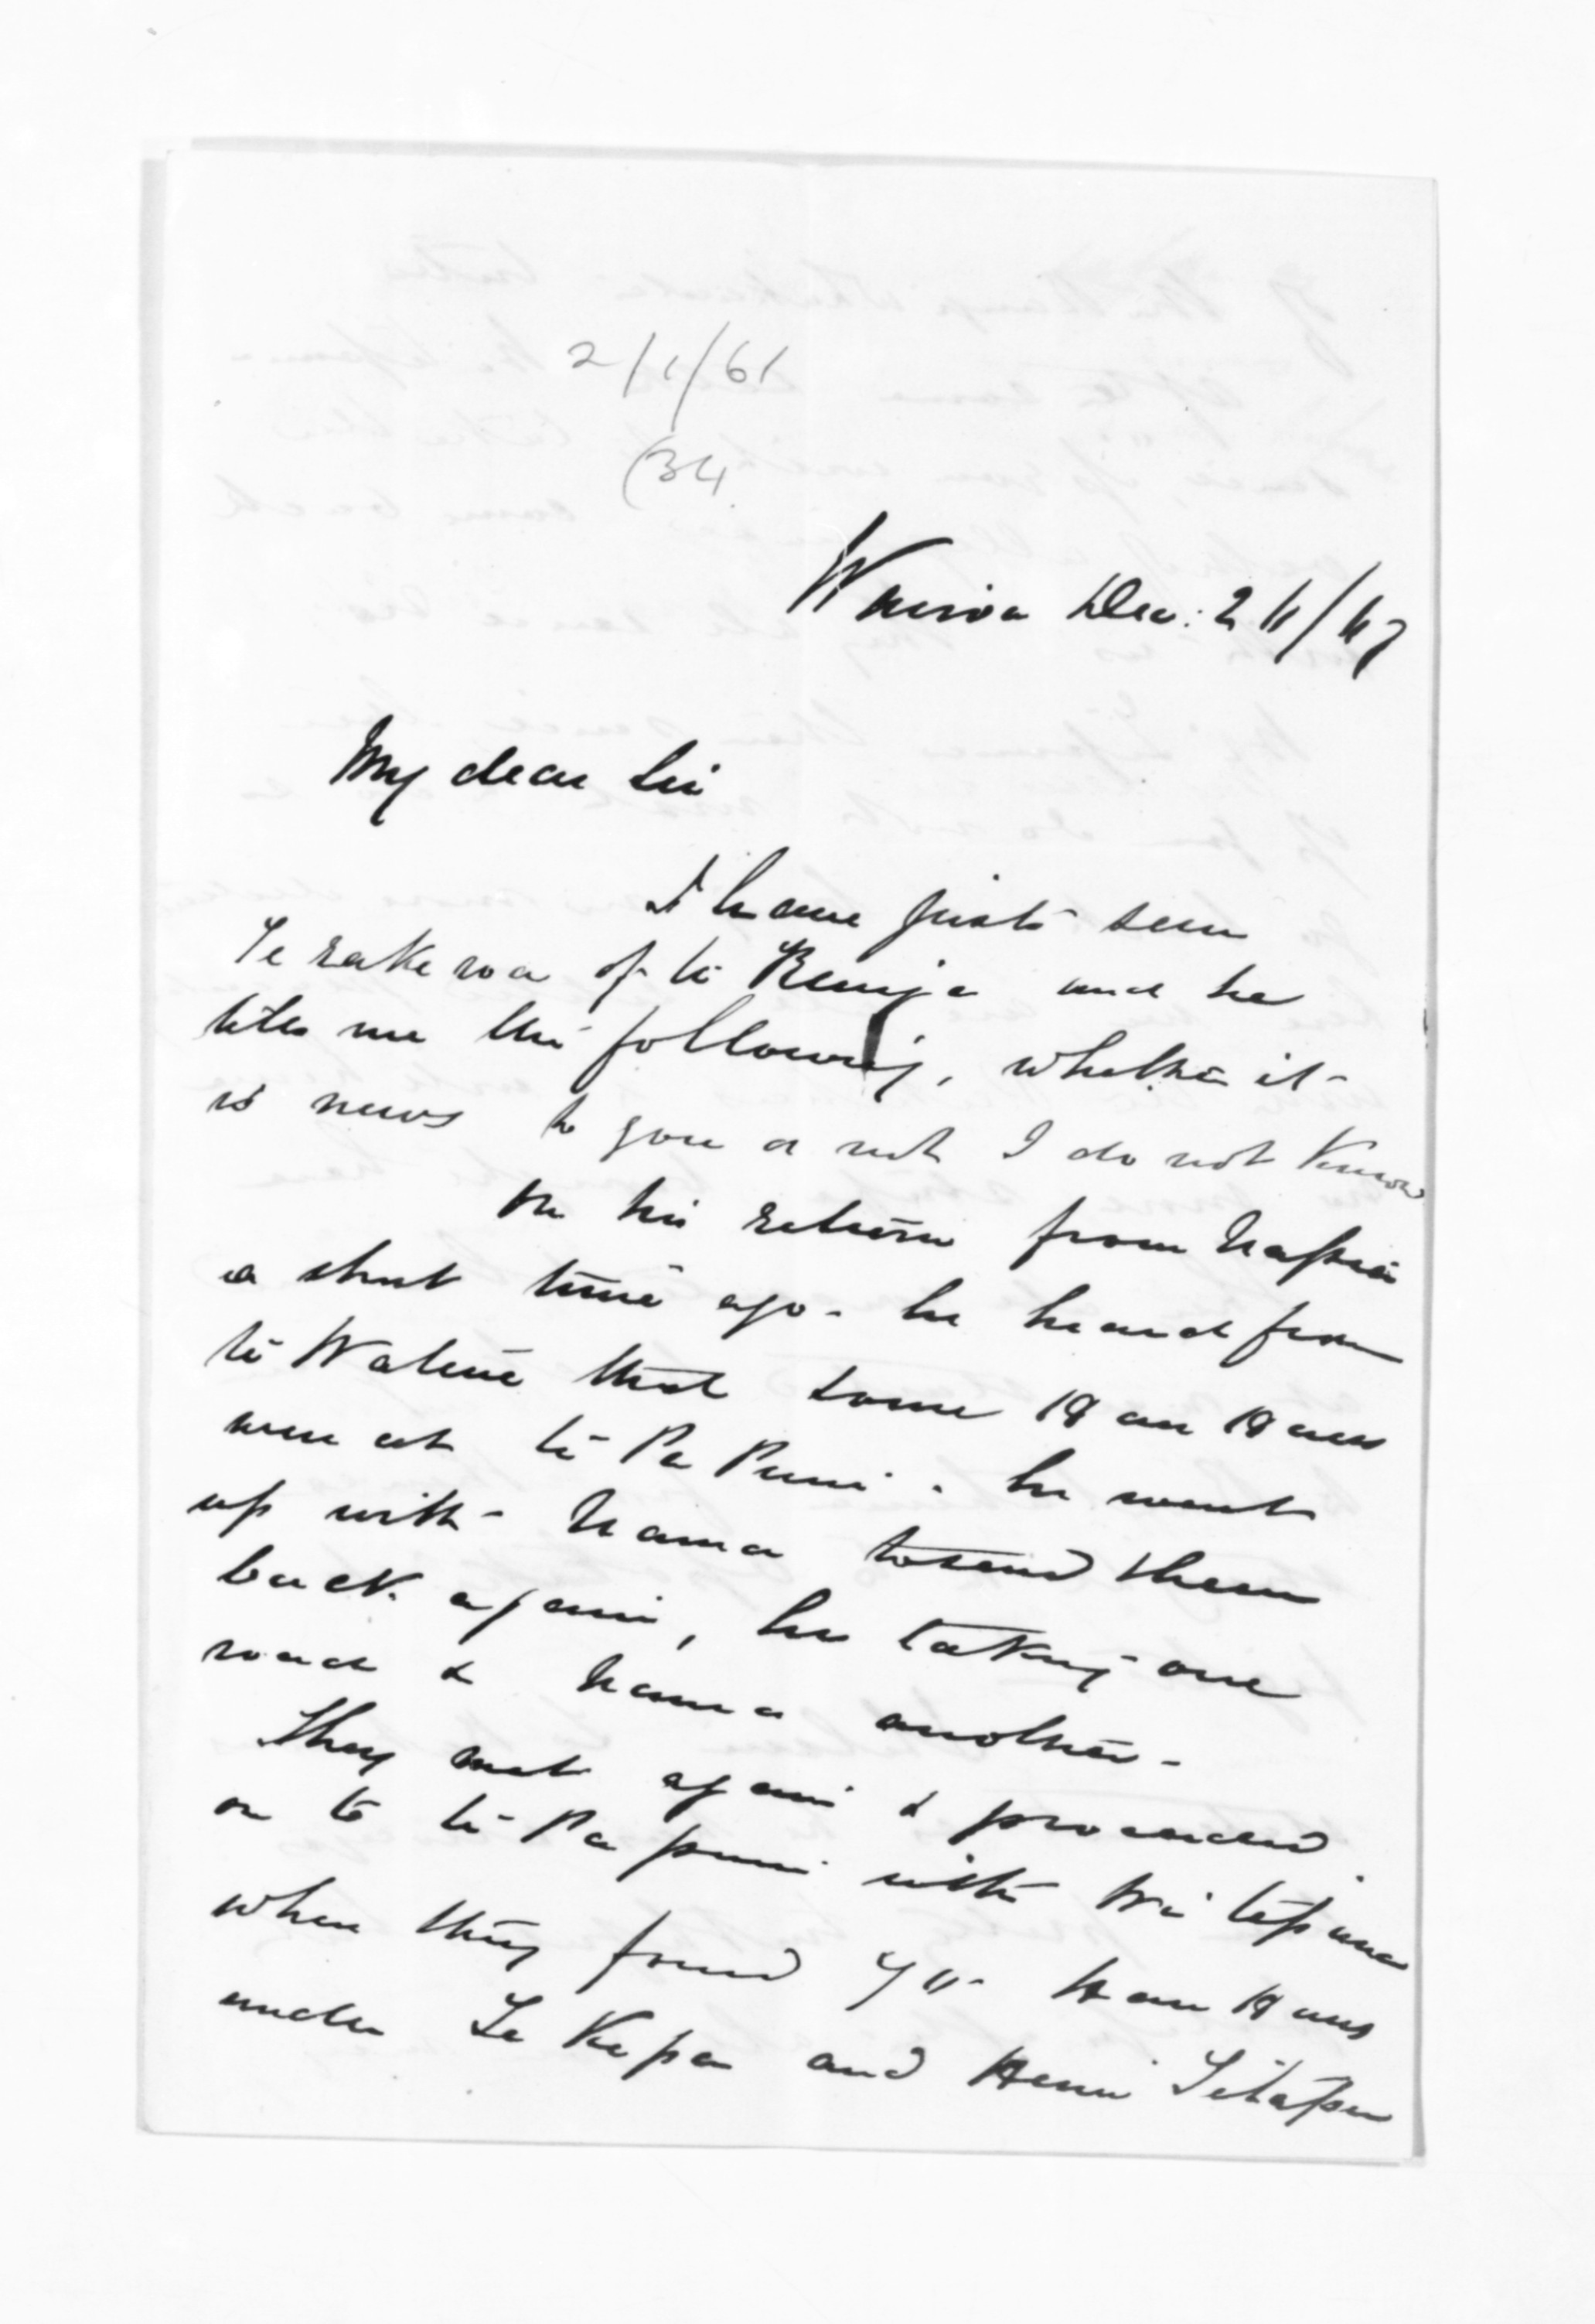 2/1/61
(34
Wairoa Dec: 26/67
My dear Sir
I have just seen
Te rakeroa of te Reinga and he
tells me the following, whether it
is news to you or not I do not know
On his return from Napier
a short time ago. he heard from
te Watene that some Hau Haus
were at te Papuni. he went
up with Hama to send them
back again, he taking one
road & Hama another.
They met again & proceeded
on to te Papuni with Wi tepuna
when they found 70 Hau Haus
under Te Kepa and Henri